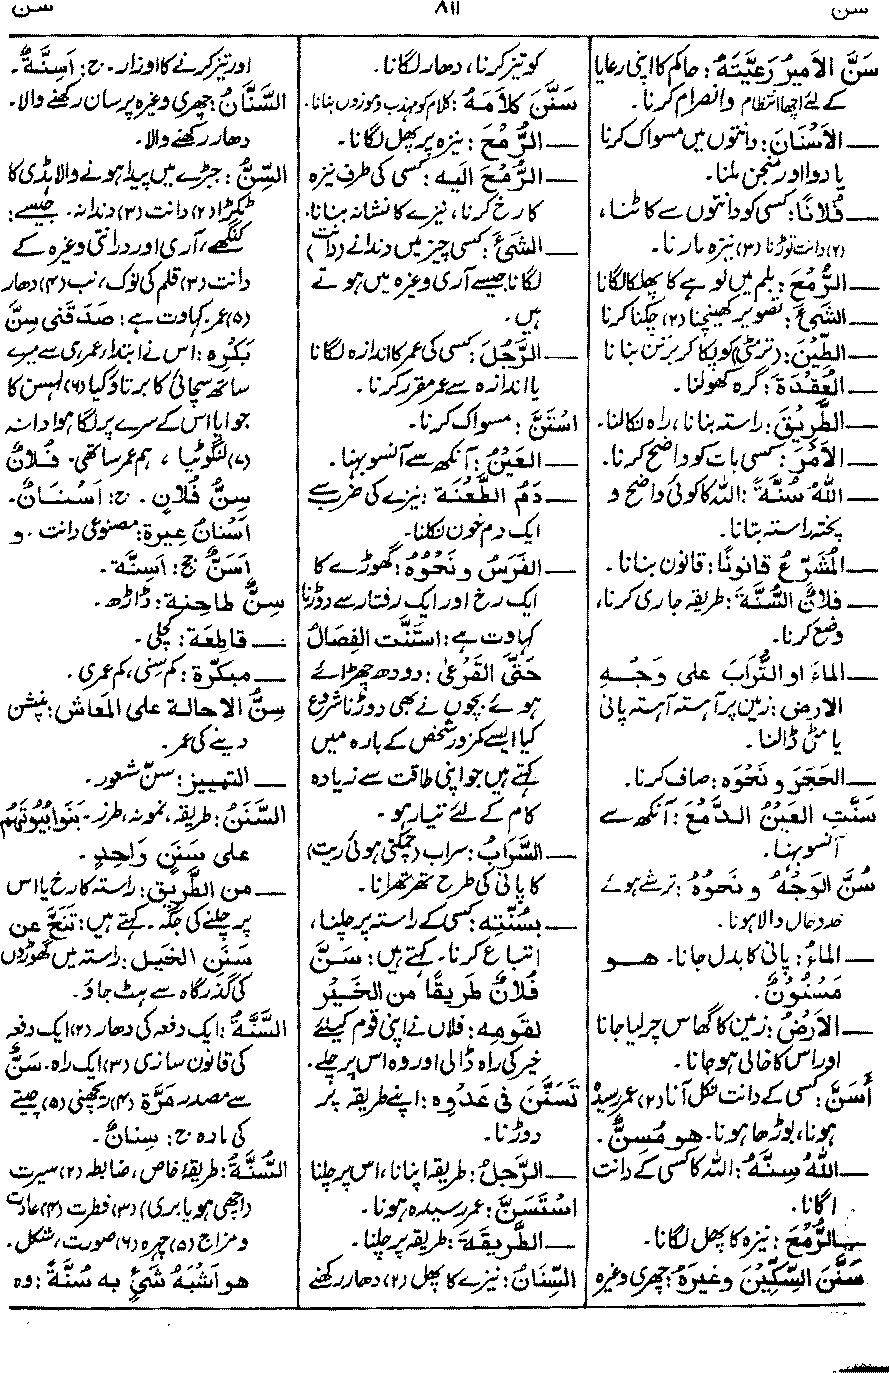 سن ۸۱۱ سن
سَنَّ الأمیرُ رَعِیَّتَهُ: حاکم کا اپنی رعایا
کے لئے اچھا انتظام وانصرام کرنا۔
— الأسْنَانَ: دانتوں میں مسواک کرنا
یا دوا اور منجن ملنا۔
— فُلَانًا: کسی کو دانتوں سے کاٹنا،
(۲) دانت توڑنا (۳) نیزہ مارنا۔
— الرُّمْحَ: بلم میں لوہے کا پھلکا لگانا
— الشَّیْءَ: تصویر کھینچنا (۲) چکنا کرنا
— الطِّیْنَ: (ترمٹی) کو پکا کر برتن بنانا
— العُقْدَةَ: گرہ کھولنا۔
— الطَّرِیْقَ: راستہ بنانا، راہ نکالنا۔
— الأمْرَ: کسی بات کو واضح کرنا۔
— اللّٰهُ سُنَّةً: اللہ کا کوئی واضح و
پختہ راستہ بتانا۔
— المُشَرِّعُ قَانُونًا: قانون بنانا۔
— فلانٌ السُّنَّةَ: طریقہ جاری کرنا،
وضع کرنا۔
— الماءَ او التُّرَابَ علی وَجْهِ
الارضِ: زمین پر آہستہ آہستہ پانی
یا مٹی ڈالنا۔
— الحَجَرَ و نَحْوَه: صاف کرنا۔
سَنَّتِ العَیْنُ الدَّمْعَ: آنکھ سے
آنسو بہنا۔
سُنَّ الوَجْهُ و نَحْوُهُ: ترشے ہوئے
خدوخال والا ہونا۔
— الماءُ: پانی کا بدل جانا۔ هو
مَسْنُونٌ۔
— الأرْضُ: زمین کا گھاس چر لیا جانا
اور اس کا خالی ہو جانا۔
أسَنَّ: کسی کے دانت نکل آنا (۲) عمر رسیدہ
ہونا، بوڑھا ہونا۔ هو مُسِنٌّ۔
— اللّٰهُ سِنَّهُ: اللہ کا کسی کے دانت
اگانا۔
— الرُّمْحَ: نیزہ کا پھل لگانا۔
سَنَّنَ السِّکِّیْنَ وغیرَهُ: چھری وغیرہ
کو تیز کرنا، دھار لگانا۔
سَنَّنَ کَلَامَهُ: کلام کو مہذب و موزوں بنانا۔
— الرُّمْحَ: نیزہ پر پھل لگانا۔
— الرُّمْحَ الیه: کسی کی طرف نیزہ
کا رخ کرنا، نیزے کا نشانہ بنانا۔
— الشَّیْءَ: کسی چیز میں دندانے (دانت)
لگانا جیسے آری وغیرہ میں ہوتے
ہیں۔
— الرَّجُلَ: کسی کی عمر کا اندازہ لگانا
یا اندازہ سے عمر مقرر کرنا۔
اسْتَنَّ: مسواک کرنا۔
— العَیْنُ: آنکھ سے آنسو بہنا۔
— دَمُ الطَّعْنَةِ: نیزے کی ضرب سے
ایک دم خون نکلنا۔
— الفَرَسُ و نَحْوُهُ: گھوڑے کا
ایک رخ اور ایک رفتار سے دوڑنا
کہاوت ہے: اسْتَنَّت الفِصَالُ
حَتَّی القَرْعٰی: دودھ چھڑائے
ہوئے بچوں نے بھی دوڑنا شروع
کیا ایسے کمزور شخص کے بارہ میں
کہتے ہیں جو اپنی طاقت سے زیادہ
کام کے لئے تیار ہو۔
— السَّرَابُ: سراب (چمکتی ہوئی ریت)
کا پانی کی طرح تھرتھرانا۔
— بِسُنَّتِه: کسی کے راستہ پر چلنا،
اتباع کرنا۔ کہتے ہیں: سَنَّ
فُلَانٌ طَرِیقًا من الخَیْرِ
لِقَومِه: فلاں نے اپنی قوم کیلئے
خیر کی راہ ڈالی اور وہ اس پر چلے۔
تَسَنَّنَ فی عَدْوِه: اپنے طریقہ پر
دوڑنا۔
— الرَّجلُ: طریقہ اپنانا، اس پر چلنا
اسْتَسَنَّ: عمر رسیدہ ہونا۔
— الطَّرِیقَةَ: طریقہ پر چلنا۔
السِّنَانُ: نیزے کا پھل (۲) دھار رکھنے
اور تیز کرنے کا اوزار۔ ج: أسِنَّةٌ۔
السَّنَّانُ: چھری وغیرہ پر سان رکھنے والا۔
دھار رکھنے والا۔
السِّنُّ: جبڑے میں پیدا ہونے والا ہڈی کا
ٹکڑا (۲) دانت (۳) دندانہ۔ جیسے:
کنگھے، آری اور درانتی وغیرہ کے
دانت (۳) قلم کی نوک، نب (۴) دھار
(۵) عمر کہاوت ہے: صَدَقَنی سِنَّ
بَکْرِه: اس نے ابتداء عمری سے میرے
ساتھ سچائی کا برتاؤ کیا (۶) لہسن کا
جوا یا اس کے سرے پر لگا ہوا دانہ
(۷) لنگوٹیا، ہم عمر ساتھی۔ فُلَانٌ
سِنُّ فُلَانٍ۔ ج: اَسْنَانٌ۔
أسْنَانٌ عِیرة: مصنوعی دانت۔ و
أسَنٌّ جج: أسِنَّة۔
سِنٌّ طاحِنة: ڈاڑھ۔
— قاطِعَة: کچلی۔
— مبکرّة: کم سِنی، کم عمری۔
سِنُّ الاحالة علی المَعَاش: پنشن
دینے کی عمر۔
— التمییز: سنّ شعور۔
السَّنَنُ: طریقہ، نمونہ، طرز۔ بَنَوا بُیُوتَهُم
علی سَنَنٍ وَاحِدٍ۔
— من الطَّرِیقِ: راستہ کا رخ یا اس
پر چلنے کی جگہ۔ کہتے ہیں: تَنَحَّ عن
سَنَنِ الخَیلِ: راستہ میں گھوڑوں
کی گذرگاہ سے ہٹ جاؤ۔
السَّنَّةُ: ایک دفعہ کی دھار (۲) ایک دفعہ
کی قانون سازی (۳) ایک راہ۔ سَنَّ
سے مصدر مَرَّة (۴) ریچھنی (۵) چیتے
کی مادہ ج: سِنانٌ۔
السُّنَّةُ: طریقۂ خاص، ضابطہ (۲) سیرت
(اچھی ہو یا بری) (۳) فطرت (۴) عادت
و مزاج (۵) چہرہ (۶) صورت، شکل۔
هو أشْبَهُ شَیْءٍ به سُنَّةً: وہ